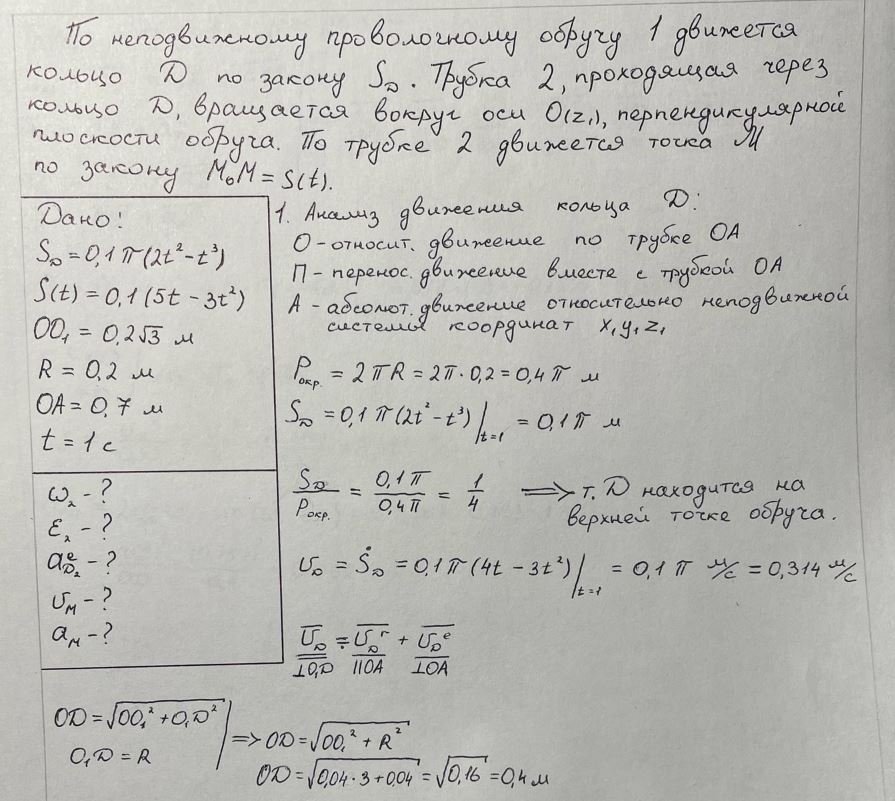 По неподвижному проволочному обручу 1 движется
кольцо D по закону S_D. Трубка 2, проходящая через
кольцо D, вращается вокруг оси O(z₁), перпендикулярной
плоскости обруча. По трубке 2 движется точка M
по закону M₀M = S(t).
Дано:
S_D = 0,1π(2t² - t³)
S(t) = 0,1(5t - 3t²)
OO₁ = 0,2√3 м
R = 0,2 м
OA = 0,7 м
t = 1 с
ω₂ - ?
ε₂ - ?
a^e_D₂ - ?
υ_M - ?
a_M - ?
1. Анализ движения кольца D:
О - относит. движение по трубке OA
П - перенос. движение вместе с трубкой OA
А - абсолют. движение относительно неподвижной
системы координат x₁y₁z₁
P_окр. = 2πR = 2π·0,2 = 0,4π м
S_D = 0,1π(2t² - t³)|_t=1 = 0,1π м
S_D/P_окр. = 0,1π/0,4π = 1/4 ⟹ т. D находится на
верхней точке обруча.
υ_D = Ṡ_D = 0,1π(4t - 3t²)|_t=1 = 0,1π м/с = 0,314 м/с
υ_D = υ_D^r + υ_D^e
⊥O₁D ||OA ⊥OA
OD = √(OO₁² + O₁D²)
O₁D = R
⟹ OD = √(OO₁² + R²)
OD = √(0,04·3 + 0,04) = √0,16 = 0,4 м